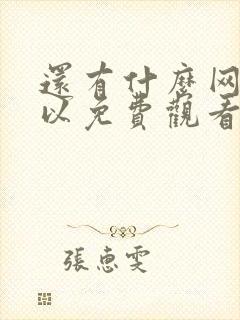 還有什麼网
以免費觀看
張惠雯